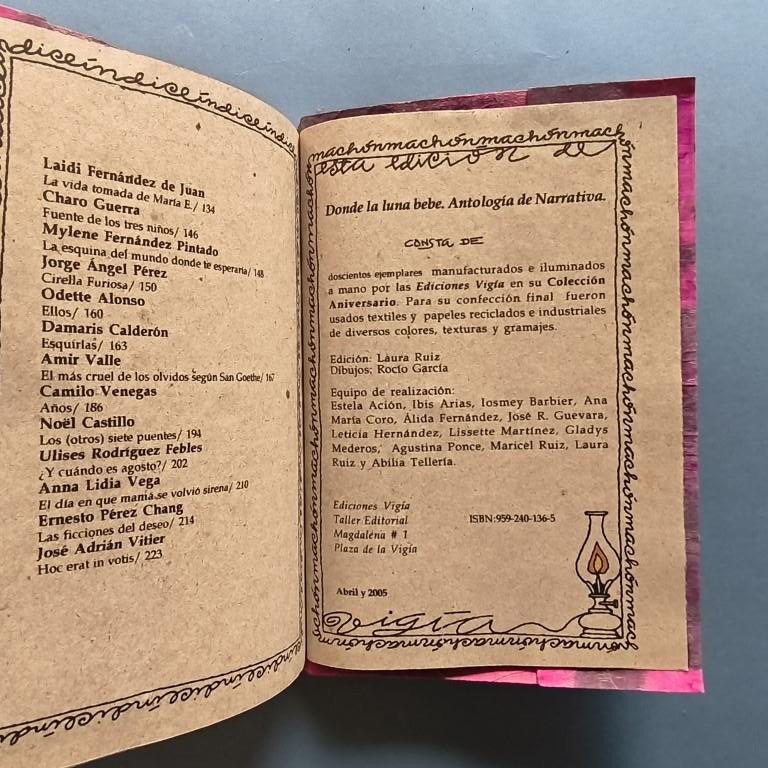 índiceíndiceíndiceíndice
Laidi Fernández de Juan
La vida tomada de María E./ 134
Charo Guerra
Fuente de los tres niños/ 146
Mylene Fernández Pintado
La esquina del mundo donde te esperaría/ 148
Jorge Ángel Pérez
Cirella Furiosa/ 150
Odette Alonso
Ellos/ 160
Damaris Calderón
Esquirlas/ 163
Amir Valle
El más cruel de los olvidos según San Goethe/ 167
Camilo Venegas
Años/ 186
Noël Castillo
Los (otros) siete puentes/ 194
Ulises Rodríguez Febles
¿Y cuándo es agosto?/ 202
Anna Lidia Vega
El día en que mamá se volvió sirena/ 210
Ernesto Pérez Chang
Las ficciones del deseo/ 214
José Adrián Vitier
Hoc erat in votis/ 223
machónmachónmachónmachónmach
esta edición de
Donde la luna bebe. Antología de Narrativa.
CONSTA DE
doscientos ejemplares manufacturados e iluminados
a mano por las Ediciones Vigía en su Colección
Aniversario. Para su confección final fueron
usados textiles y papeles reciclados e industriales
de diversos colores, texturas y gramajes.
Edición: Laura Ruiz
Dibujos: Rocío García
Equipo de realización:
Estela Ación, Ibis Arias, Iosmey Barbier, Ana
María Coro, Álida Fernández, José R. Guevara,
Leticia Hernández, Lissette Martínez, Gladys
Mederos, Agustina Ponce, Maricel Ruiz, Laura
Ruiz y Abilia Tellería.
Ediciones Vigía
Taller Editorial
Magdalena # 1
Plaza de la Vigía
ISBN:959-240-136-5
Abril y 2005
Vigía